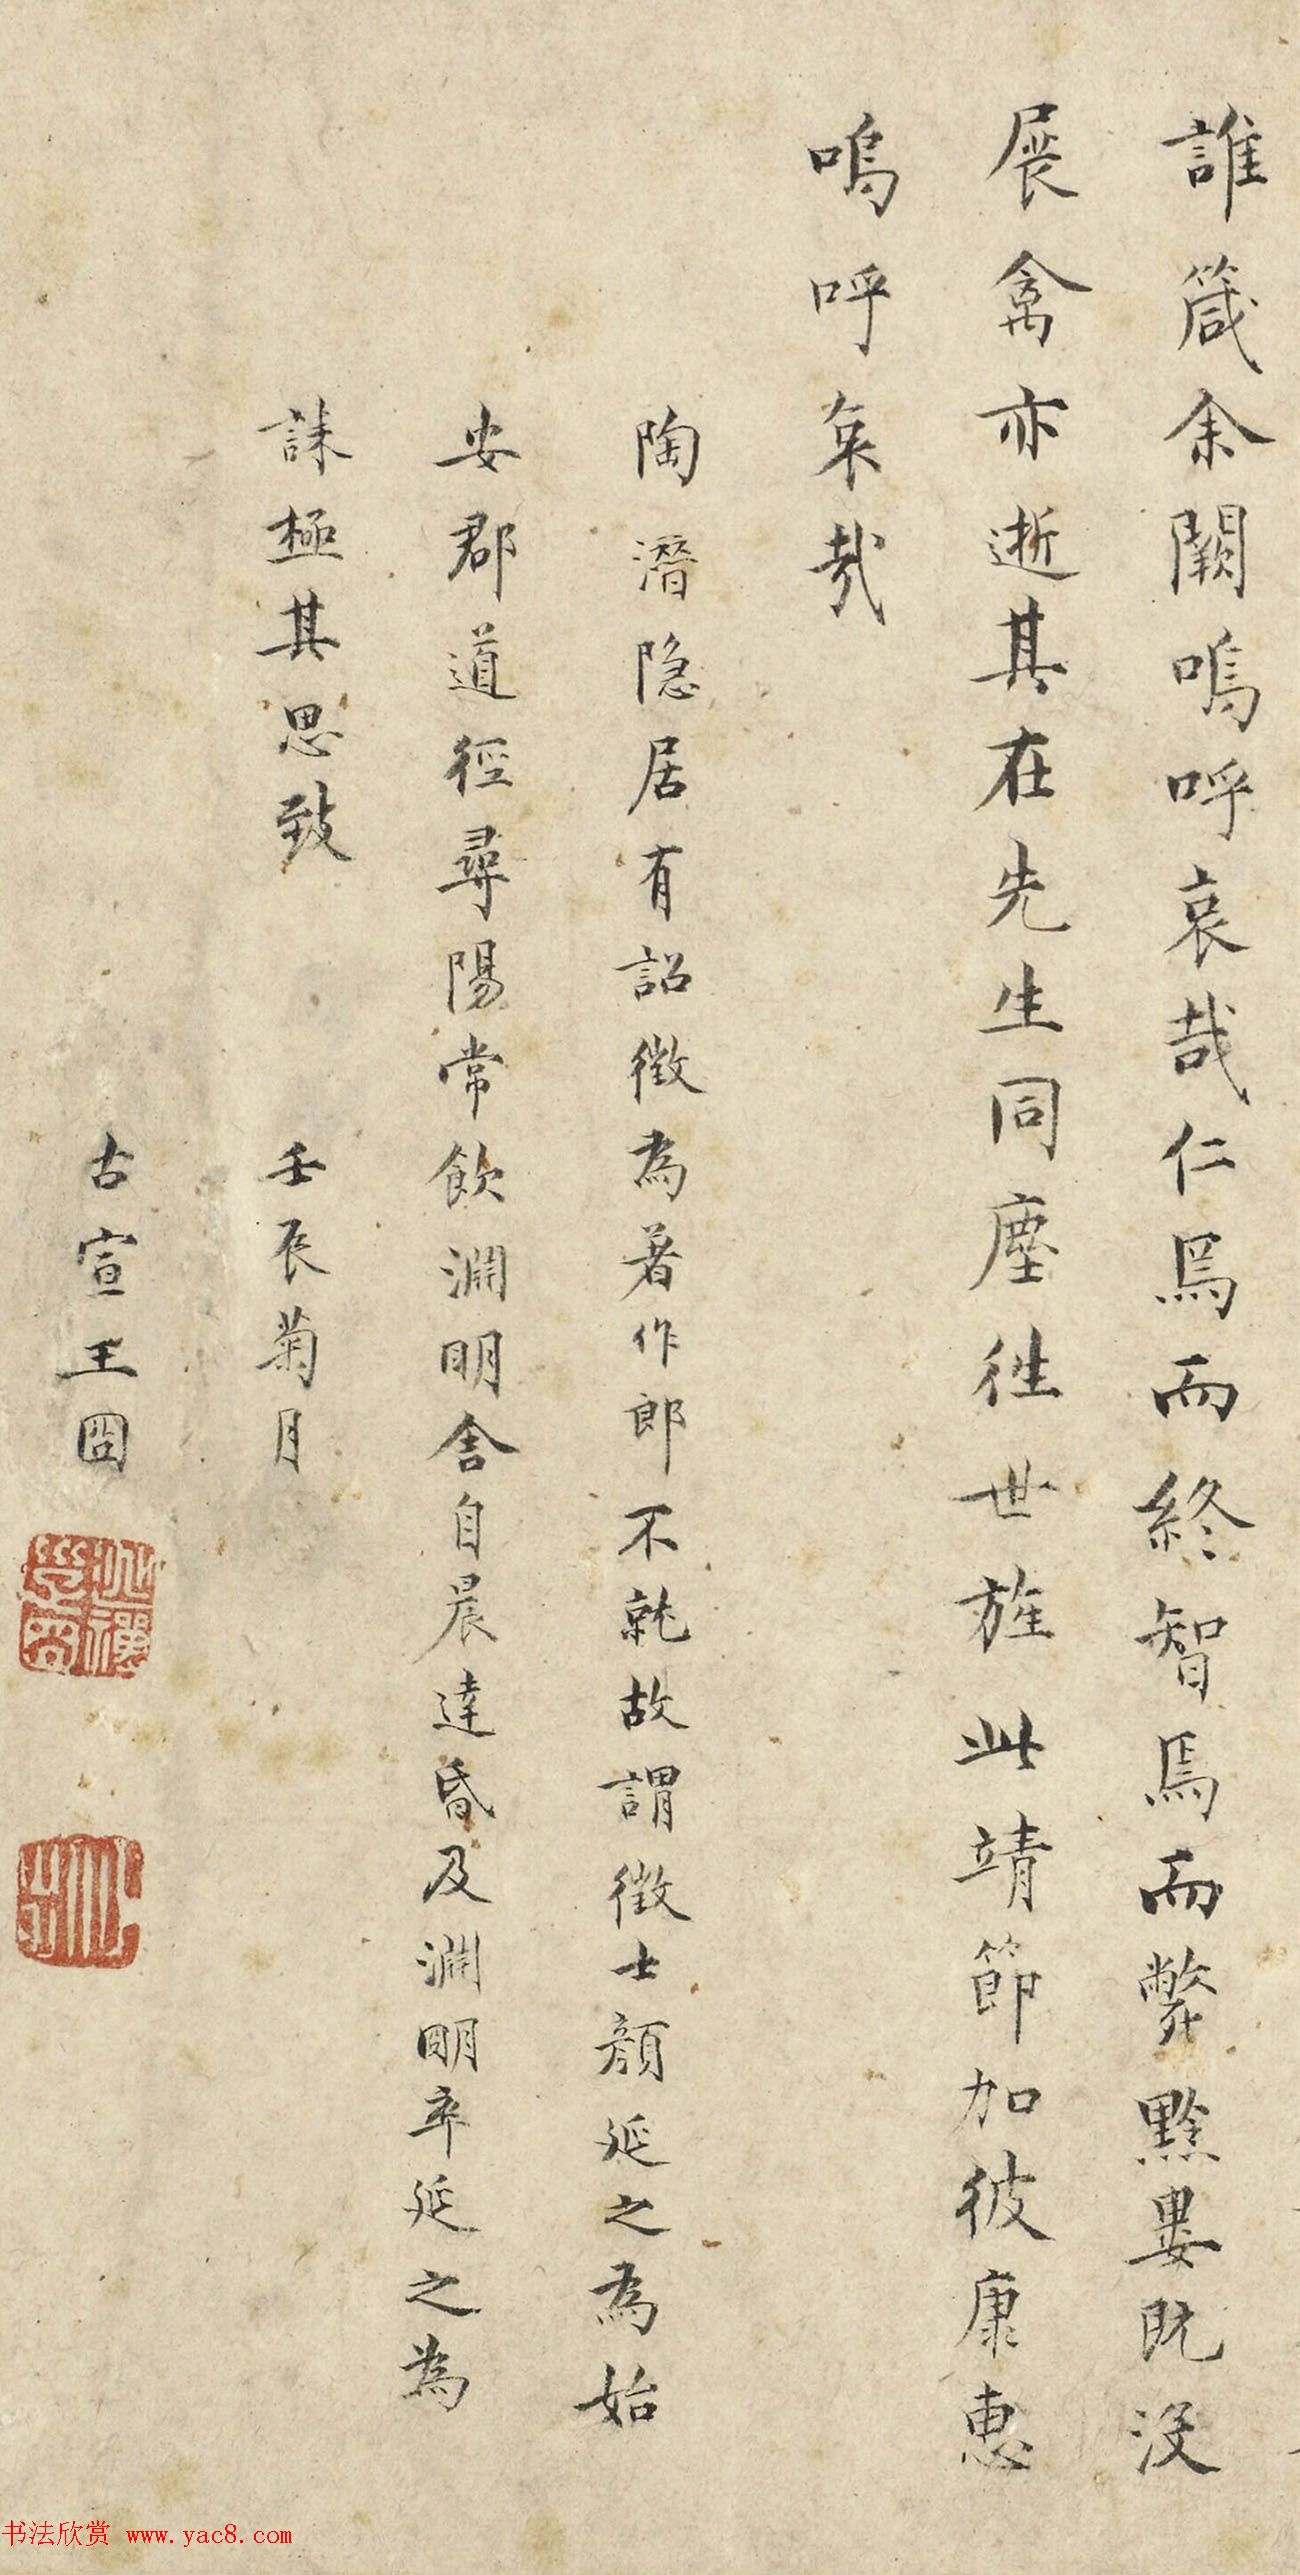 誰箴余闕嗚呼哀哉仁焉而終智焉而斃黔婁既没
展禽亦逝其在先生同塵往世旌此靖節加彼康惠
嗚呼哀哉
陶潛隐居有詔徵為著作郎不就故謂徵士顏延之為始
安郡道徑尋陽常飲淵明舍自晨達昏及淵明卒延之為
誄極其思致
壬辰菊月
古宣王圖
书法欣赏 www.yac8.com